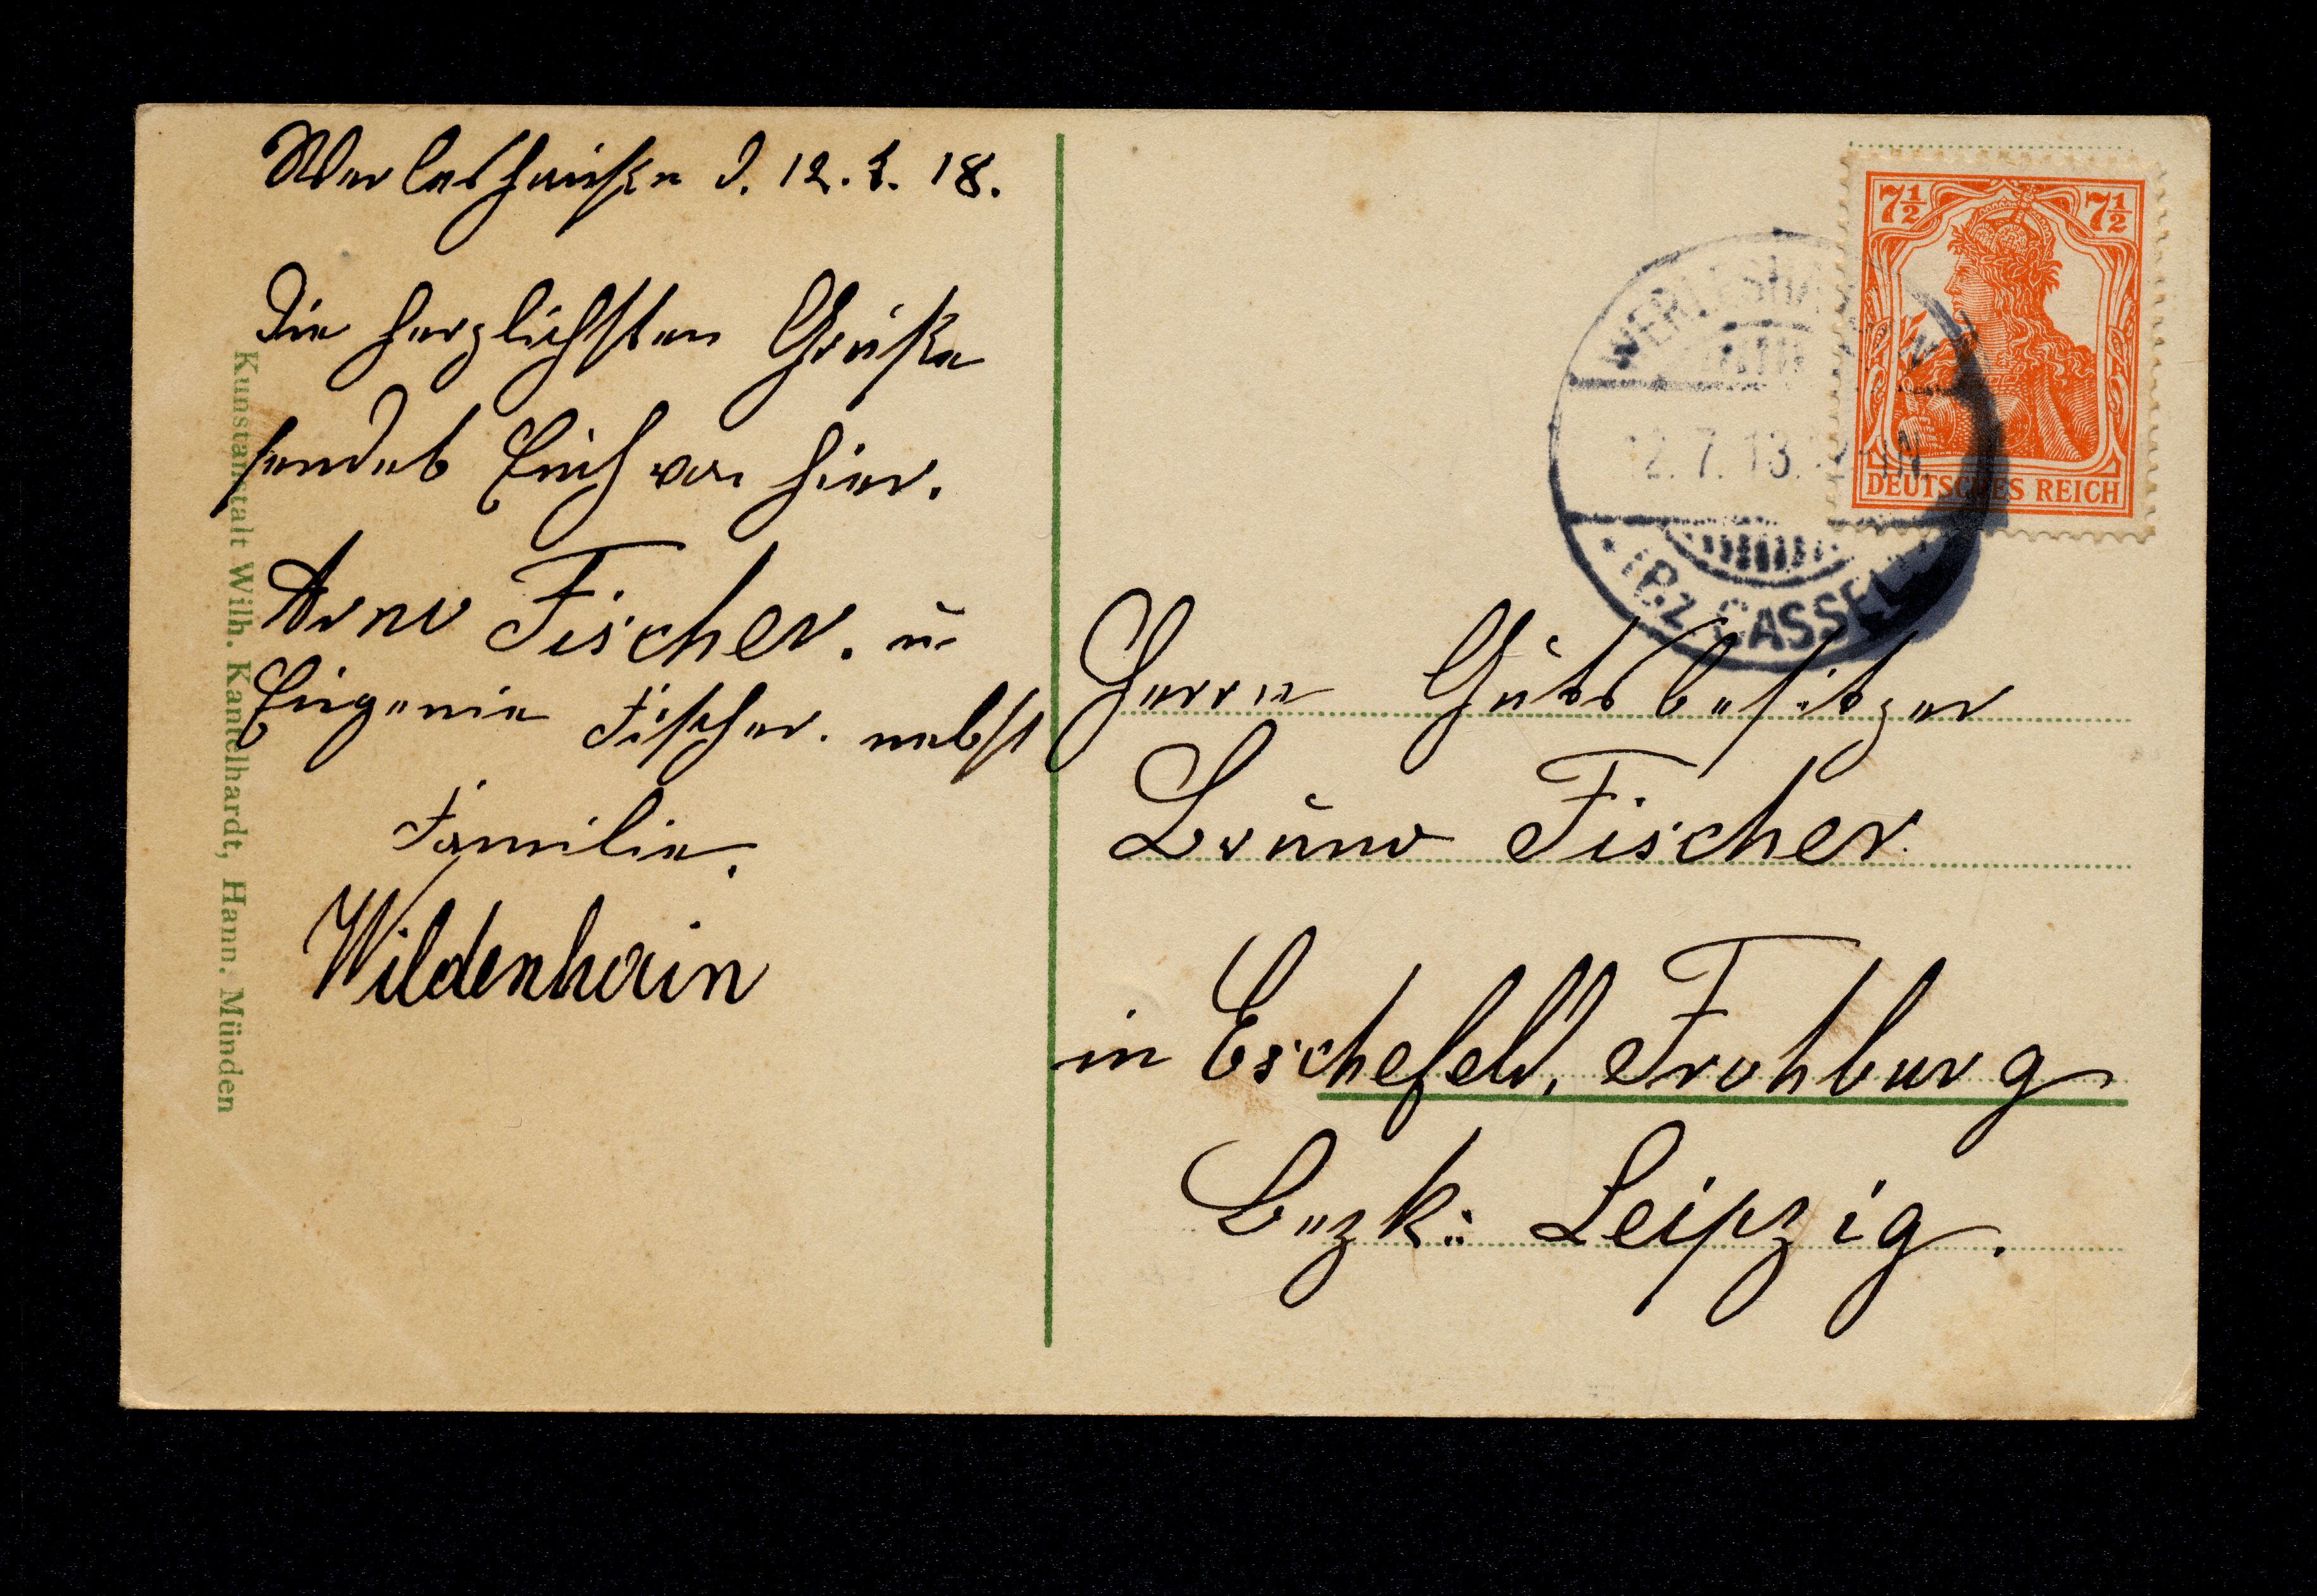 Werleshausen d. 12. 7. 18.
Die herzlichsten Grüße
sendet Euch von hier.
Arno Fischer. u.
Eugenie Fischer. nebst
Familie.
Wildenhain
Kunstanstalt Wilh. Kantelhardt, Hann. Münden
7½ 7½
DEUTSCHES REICH
WERLESHAUSEN
12. 7. 18.
(BZ. CASSEL)
Herrn Gutsbesitzer
Bruno Fischer
in Eschefeld, Frohburg
Bezk: Leipzig.